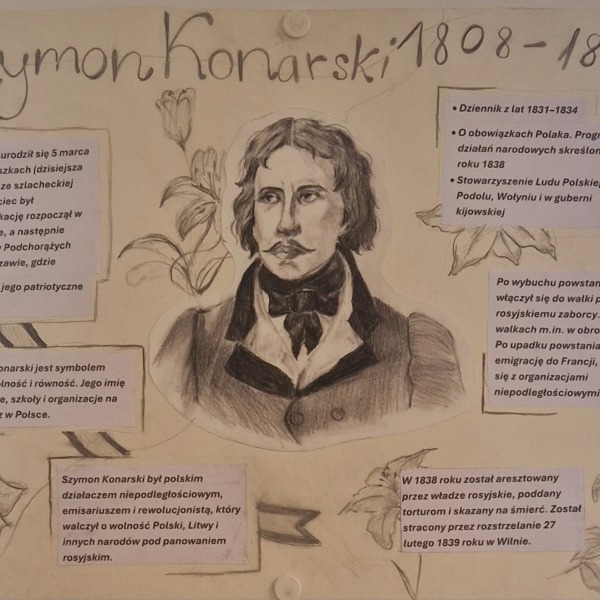 zymon Konarski 1808-18
urodził się 5 marca
szkach (dzisiejsza
ze szlacheckiej
ciec był
kację rozpoczął w
e, a następnie
Podchorążych
zawie, gdzie
jego patriotyczne
onarski jest symbolem
olność i równość. Jego imię
e, szkoły i organizacje na
z w Polsce.
Szymon Konarski był polskim
działaczem niepodległościowym,
emisariuszem i rewolucjonistą, który
walczył o wolność Polski, Litwy i
innych narodów pod panowaniem
rosyjskim.
• Dziennik z lat 1831–1834
• O obowiązkach Polaka. Progr
działań narodowych skreślon
roku 1838
• Stowarzyszenie Ludu Polskie
Podolu, Wołyniu i w guberni
kijowskiej
Po wybuchu powstan
włączył się do walki p
rosyjskiemu zaborcy.
walkach m.in. w obro
Po upadku powstania
emigrację do Francji,
się z organizacjami
niepodległościowymi
W 1838 roku został aresztowany
przez władze rosyjskie, poddany
torturom i skazany na śmierć. Został
stracony przez rozstrzelanie 27
lutego 1839 roku w Wilnie.